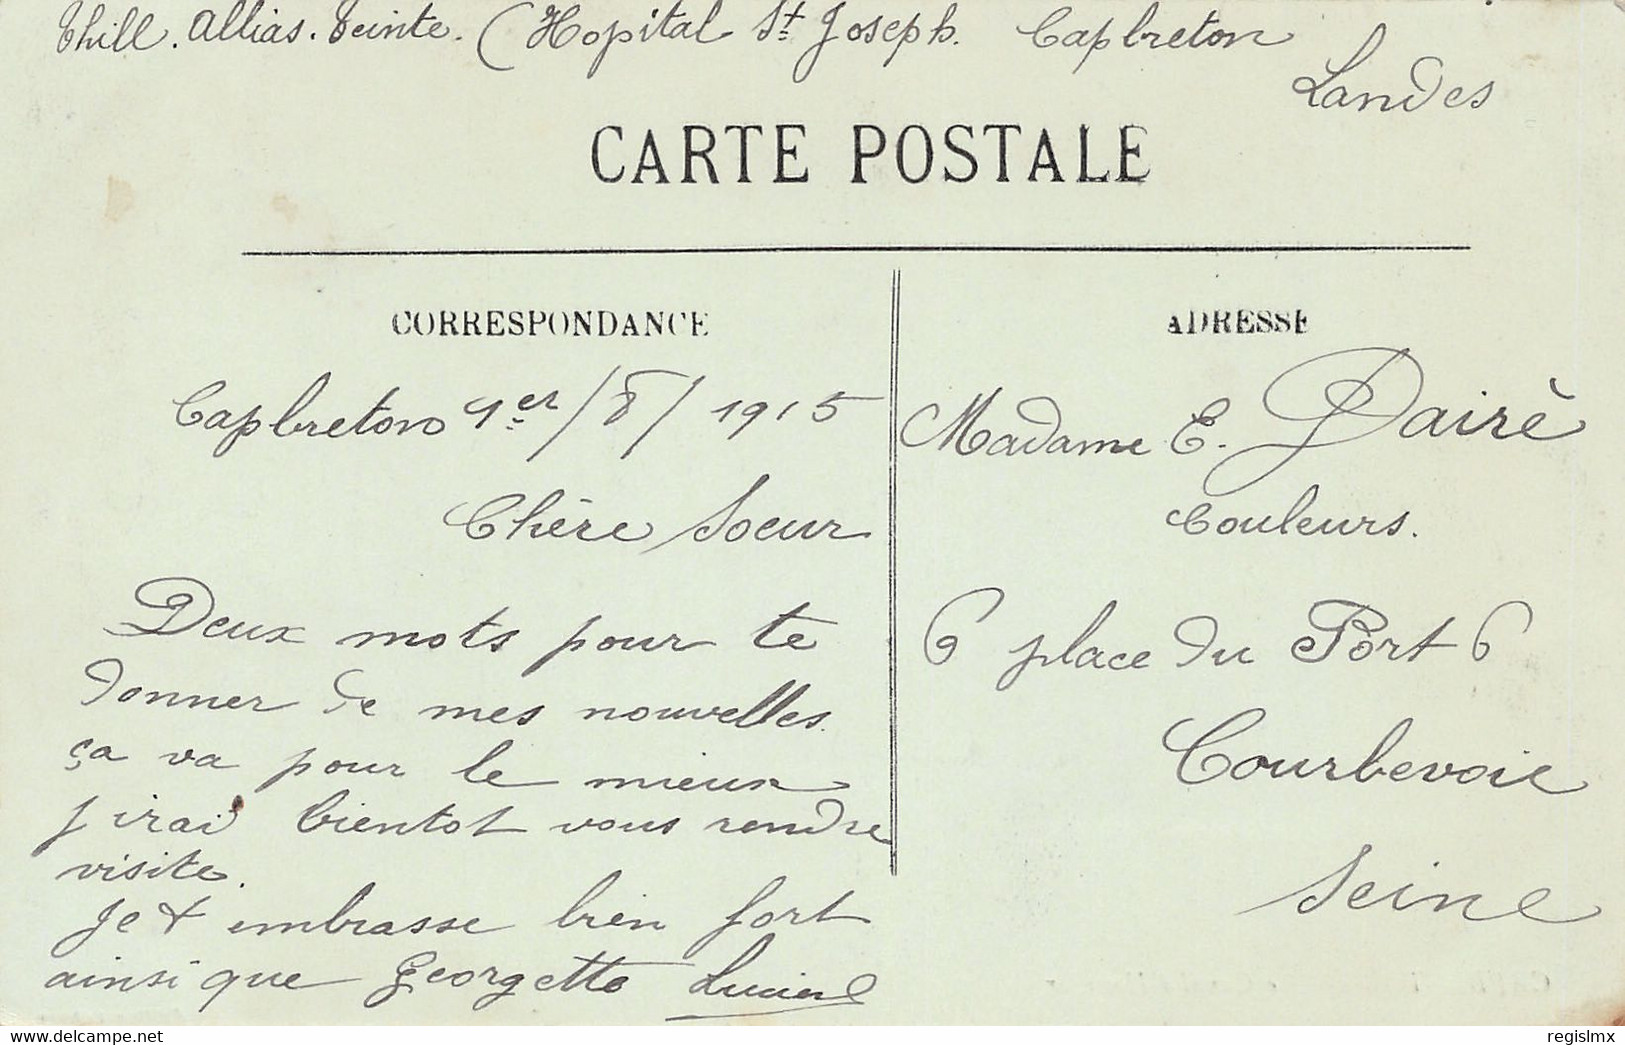 Thill. Allias. Teinte. (Hopital St Joseph. Capbreton
Landes
CARTE POSTALE
CORRESPONDANCE
Capbreton 1er/8/1915
Chère Soeur
Deux mots pour te
donner de mes nouvelles.
ça va pour le mieux
j irai bientot vous rendre
visite.
Je t embrasse bien fort
ainsi que Georgette Lucien
ADRESSE
Madame E. Dairè
Couleurs.
6 place du Port 6
Courbevoie
Seine
delcampe.net
regislmx